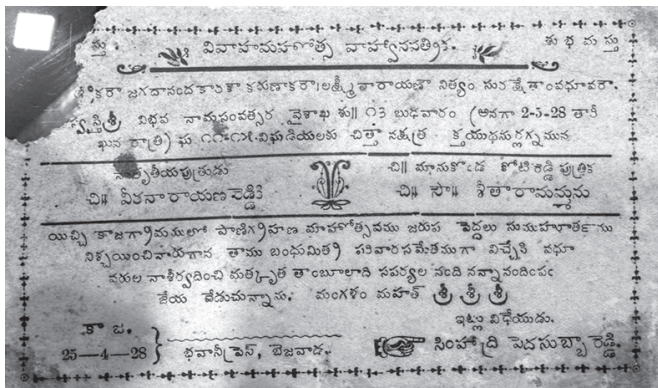 స్తు. వివాహమహోత్స వాహ్వానపత్రిక. శుభమస్తు
శ్రీకరా జగదానందకారకా కరుణాకరా। లక్ష్మీనారాయణా నిత్యం సురక్షేతాంవధూవరా.
స్వస్తిశ్రీ విభవ నామసంవత్సర వైశాఖ శు॥ ౧౩ బుధవారం (అనగా 2-5-28 తారీ
ఖున రాత్రి) ఘ విఘడియలకు చిత్తా నక్షత్ర యుధనుర్లగ్నమున
తృతీయపుత్రుడు
చి॥ వీరనారాయణరెడ్డికి
చి॥ మానుకొండ కోటిరెడ్డి పుత్రిక
చి॥ సౌ॥ సీతారామమ్మను
యిచ్చి కాజగ్రామములో పాణిగ్రహణ మాహోత్సవము జరుప పెద్దలు సుముహూర్తము
నిశ్చయించినారుగాన తాము బంధుమిత్ర పరివారసమేతముగా విచ్చేసి వధూ
వరుల నాశీర్వదించి మత్కృత తాంబూలాది సపర్యల నంది నన్నానందింపఁ
జేయ వేడుచున్నాను. మంగళం మహత్ శ్రీ శ్రీ శ్రీ
ఇట్లు విధేయుడు.
కాజ.
25—4—28
భవానీప్రెస్, బెజవాడ.
సింహాద్రి పెదసుబ్బారెడ్డి.